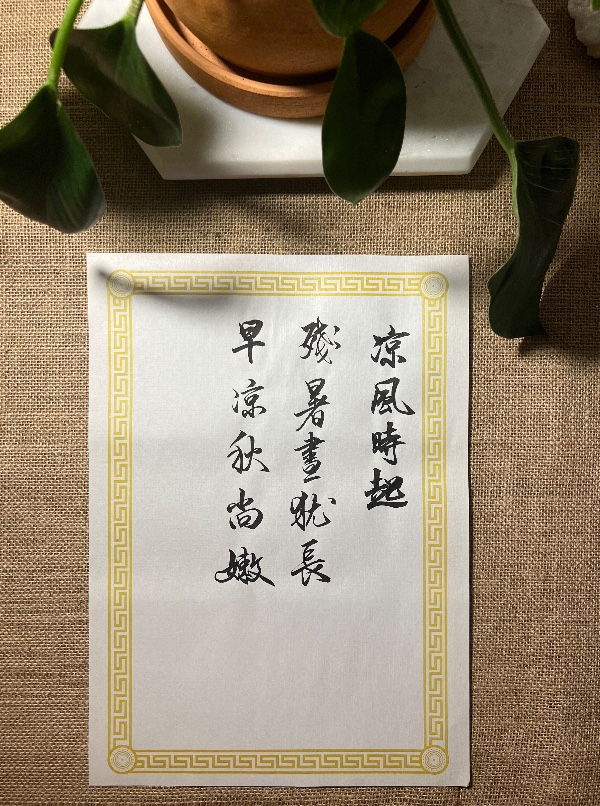 凉風時起
殘暑晝猶長
早凉秋尚嫩